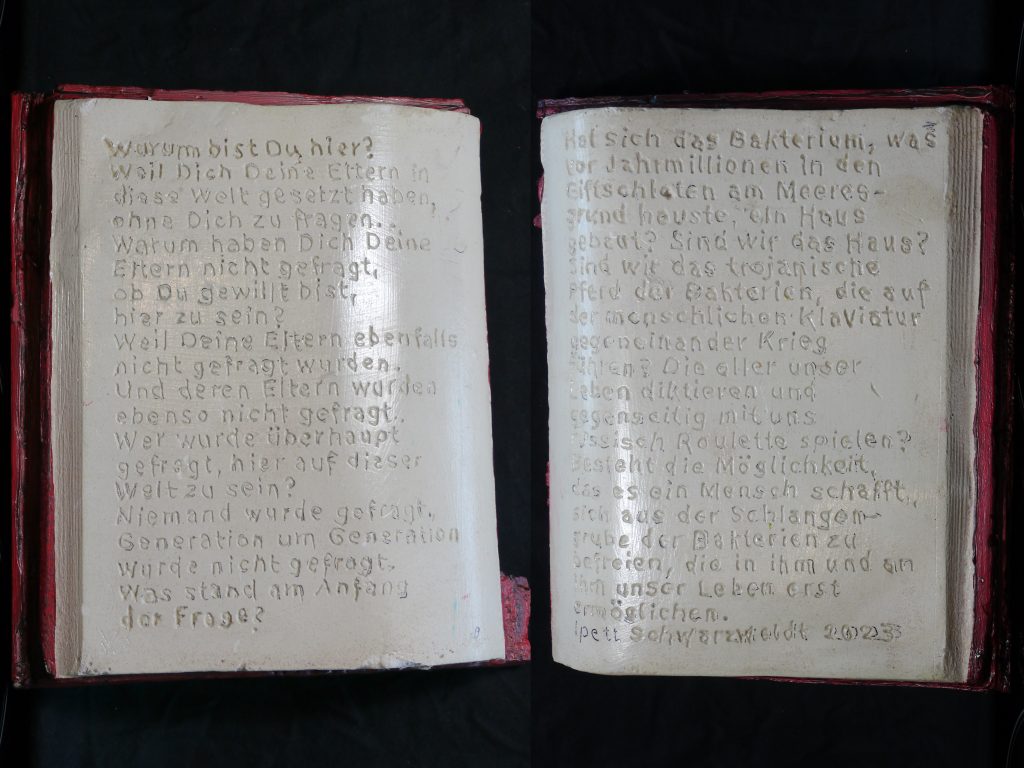 Warum bist Du hier?
Weil Dich Deine Eltern in
diese Welt gesetzt haben,
ohne Dich zu fragen...
Warum haben Dich Deine
Eltern nicht gefragt,
ob Du gewillt bist,
hier zu sein?
Weil Deine Eltern ebenfalls
nicht gefragt wurden.
Und deren Eltern wurden
ebenso nicht gefragt.
Wer wurde überhaupt
gefragt, hier auf dieser
Welt zu sein?
Niemand wurde gefragt.
Generation um Generation
wurde nicht gefragt.
Was stand am Anfang
der Frage?
Hat sich das Bakterium, was
vor Jahrmillionen in den
Giftschloten am Meeres-
grund hauste, ein Haus
gebaut? Sind wir das Haus?
Sind wir das trojanische
Pferd der Bakterien, die auf
der menschlichen Klaviatur
gegeneinander Krieg
führen? Die aller unser
Leben diktieren und
gegenseitig mit uns
russisch Roulette spielen?
Besteht die Möglichkeit,
das es ein Mensch schafft,
sich aus der Schlangen-
grube der Bakterien zu
befreien, die in ihm und an
ihm unser Leben erst
ermöglichen.
2023